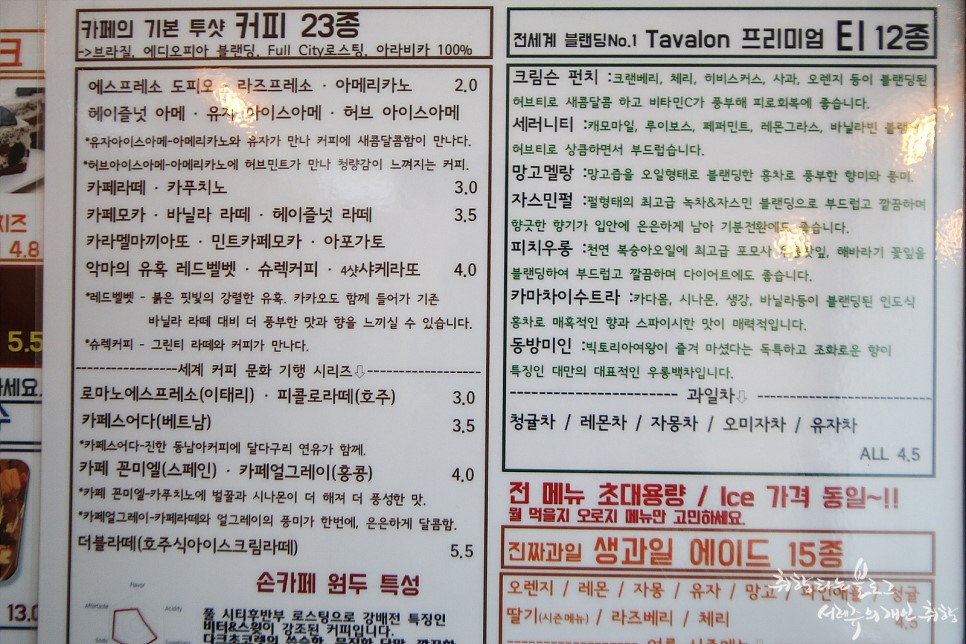 카페의 기본 투샷 커피 23종
->브라질, 에디오피아 블랜딩, Full City로스팅, 아라비카 100%
에스프레소 도피오 · 라즈프레소 · 아메리카노 2.0
헤이즐넛 아메 · 유자 아이스아메 · 허브 아이스아메
*유자아이스아메-아메리카노와 유자가 만나 커피에 새콤달콤함이 만나다.
*허브아이스아메-아메리카노에 허브민트가 만나 청량감이 느껴지는 커피.
카페라떼 · 카푸치노 3.0
카페모카 · 바닐라 라떼 · 헤이즐넛 라떼 3.5
카라멜마끼아또 · 민트카페모카 · 아포가토
악마의 유혹 레드벨벳 · 슈렉커피 · 4샷샤케라또 4.0
*레드벨벳 - 붉은 핏빛의 강렬한 유혹. 카카오도 함께 들어가 기존
바닐라 라떼 대비 더 풍부한 맛과 향을 느끼실 수 있습니다.
*슈렉커피 - 그린티 라떼와 커피가 만나다.
세계 커피 문화 기행 시리즈⇩
로마노에스프레소(이태리) · 피콜로라떼(호주) 3.0
카페스어다(베트남) 3.5
*카페스어다-진한 동남아커피에 달다구리 연유가 함께.
카페 꼰미엘(스페인) · 카페얼그레이(홍콩) 4.0
*카페 꼰미엘-카푸치노에 벌꿀과 시나몬이 더 해져 더 풍성한 맛.
*카페얼그레이-카페라떼와 얼그레이의 풍미가 한번에, 은은하게 달콤함.
더블라떼(호주식아이스크림라떼) 5.5
손카페 원두 특성
풀 시티후반부 로스팅으로 강배전 특징인
비터&스윗이 강조된 커피입니다.
전세계 블랜딩No.1 Tavalon 프리미엄 티 12종
크림슨 펀치 :크랜베리, 체리, 히비스커스, 사과, 오렌지 등이 블랜딩된
허브티로 새콤달콤 하고 비타민C가 풍부해 피로회복에 좋습니다.
세러니티 :캐모마일, 루이보스, 페퍼민트, 레몬그라스, 바닐라빈 블랜딩
허브티로 상큼하면서 부드럽습니다.
망고멜랑 :망고즙을 오일형태로 블랜딩한 홍차로 풍부한 향미와 풍미.
자스민펄 :펄형태의 최고급 녹차&자스민 블랜딩으로 부드럽고 깔끔하며
향긋한 향기가 입안에 은은하게 남아 기분전환에도 좋습니다.
피치우롱 :천연 복숭아오일에 최고급 포모사 해바라기 꽃잎을
블랜딩하여 부드럽고 깔끔하며 다이어트에도 좋습니다.
카마차이수트라 :카다몸, 시나몬, 생강, 바닐라등이 블랜딩된 인도식
홍차로 매혹적인 향과 스파이시한 맛이 매력적입니다.
동방미인 :빅토리아여왕이 즐겨 마셨다는 독특하고 조화로운 향이
특징인 대만의 대표적인 우롱백차입니다.
과일차⇩
청귤차 / 레몬차 / 자몽차 / 오미자차 / 유자차
ALL 4.5
전 메뉴 초대용량 / Ice 가격 동일~!!
뭘 먹을지 오로지 메뉴만 고민하세요.
진짜과일 생과일 에이드 15종
오렌지 / 레몬 / 자몽 / 유자 / 망고 / 파인애플 / 청귤
딸기(시즌메뉴) / 라즈베리 / 체리 4.5
치즈
4.8
5.5
하세요.
13.0
취향 타는 블로그